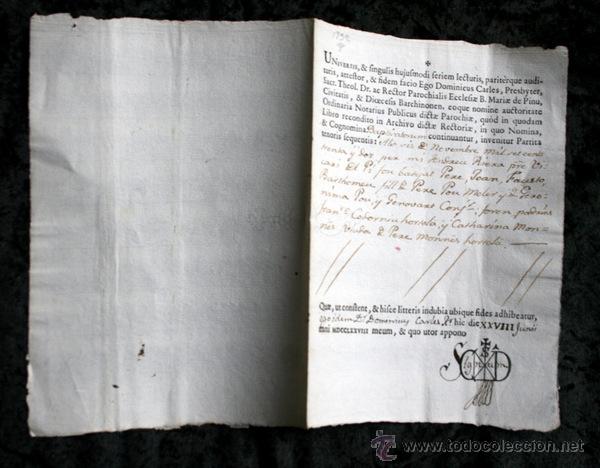 UNIVERSIS, & singulis hujusmodi seriem lecturis, pariterque audi-
turis, attestor, & fidem facio Ego Dominicus Carles, Presbyter,
Sacr. Theol. Dr. ac Rector Parochialis Ecclesiæ B. Mariæ de Pinu,
Civitatis, & Diœcesis Barchinonen. eoque nomine auctoritate
Ordinaria Notarius Publicus dictæ Parochiæ, quòd in quodam
Libro recondito in Archivo dictæ Rectoriæ, in quo Nomina,
& Cognomina Baptizatorum continuantur, invenitur Partita
tenoris sequentis: Als vis de Novembre mil setcents
trenta y dos per mi Andreu Riera pre Vi-
cari del Pi fou batejat Pere, Joan, Fausto,
Barthomeu fill de Pere Pou Meler y de Gero-
nima Pou, y Genovart Conj.s foren padrins
Fran.c Coborniu hortola, y Catharina Mon-
nés Viuda de Pere Monnés hortolà.
Quæ, ut constent, & hisce litteris indubia ubique fides adhibeatur,
ego idem Dr. Dominicus Carles Rr. hic die XXVIII Junii
MDCCLXXVIII meum, & quo utor appono
Sig num
www.todocoleccion.net